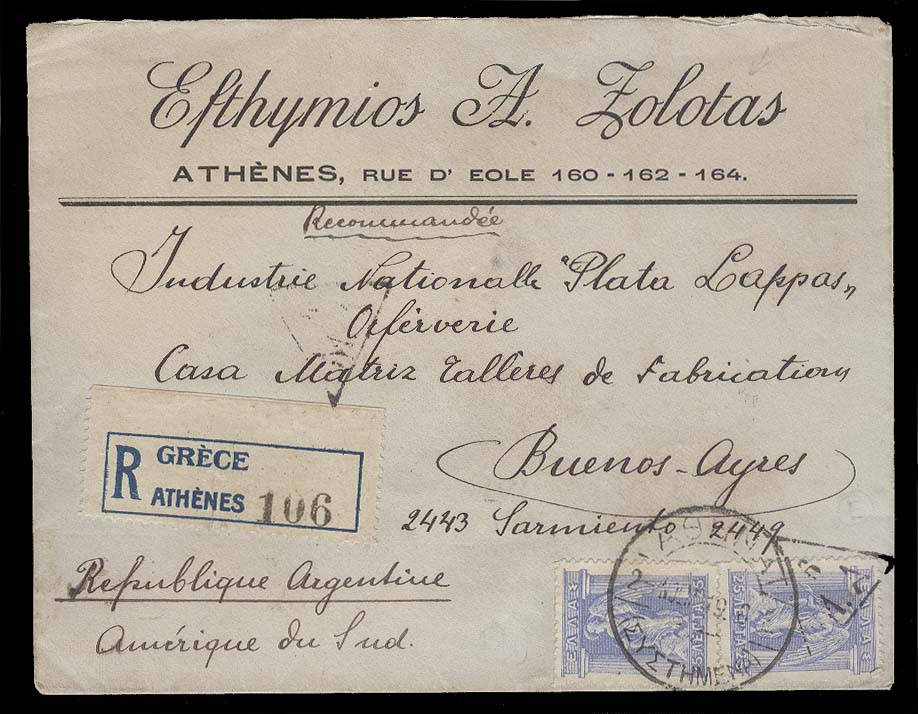 Efthymios A. Zolotas
ATHÈNES, RUE D' EOLE 160 - 162 - 164.
Recommandée
Industrie Nationalle "Plata Lappas„
Orférverie
Casa Matriz Talleres de Fabrication
R GRÈCE
ATHÈNES 106
Buenos-Ayres
2443 Sarmiento 2449
Republique Argentine
Amérique du Sud.
ΕΛΛΑΣ
25 ΛΕΠΤΑ 25
ΕΛΛΑΣ
25 ΛΕΠΤΑ 25
ΑΘΗΝΑΙ
(ΣΥΣΤΗΜΕΝΑ)